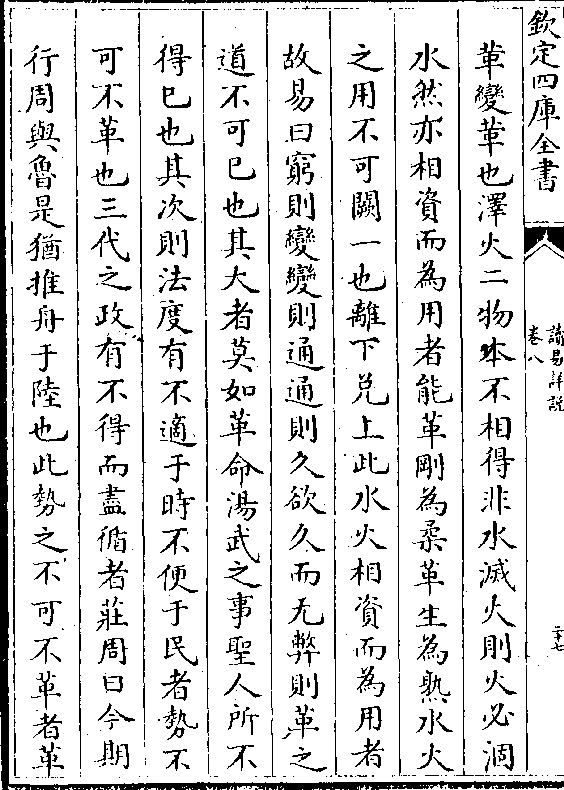 欽定四庫全書
讀易詳説
卷八
二十七
革變革也澤火二物本不相得非水滅火則火必涸
水然亦相資而為用者能革剛為柔革生為熟水火
之用不可闕一也離下兑上此水火相資而為用者
故易曰窮則變變則通通則久欲久而无弊則革之
道不可已也其大者莫如革命湯武之事聖人所不
得已也其次則法度有不適于時不便于民者勢不
可不革也三代之政有不得而盡循者莊周曰今期
行周與魯是猶推舟于陸也此勢之不可不革者革